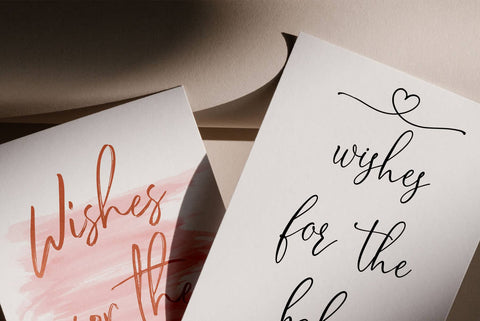 Wishes
for the
wishes
for the